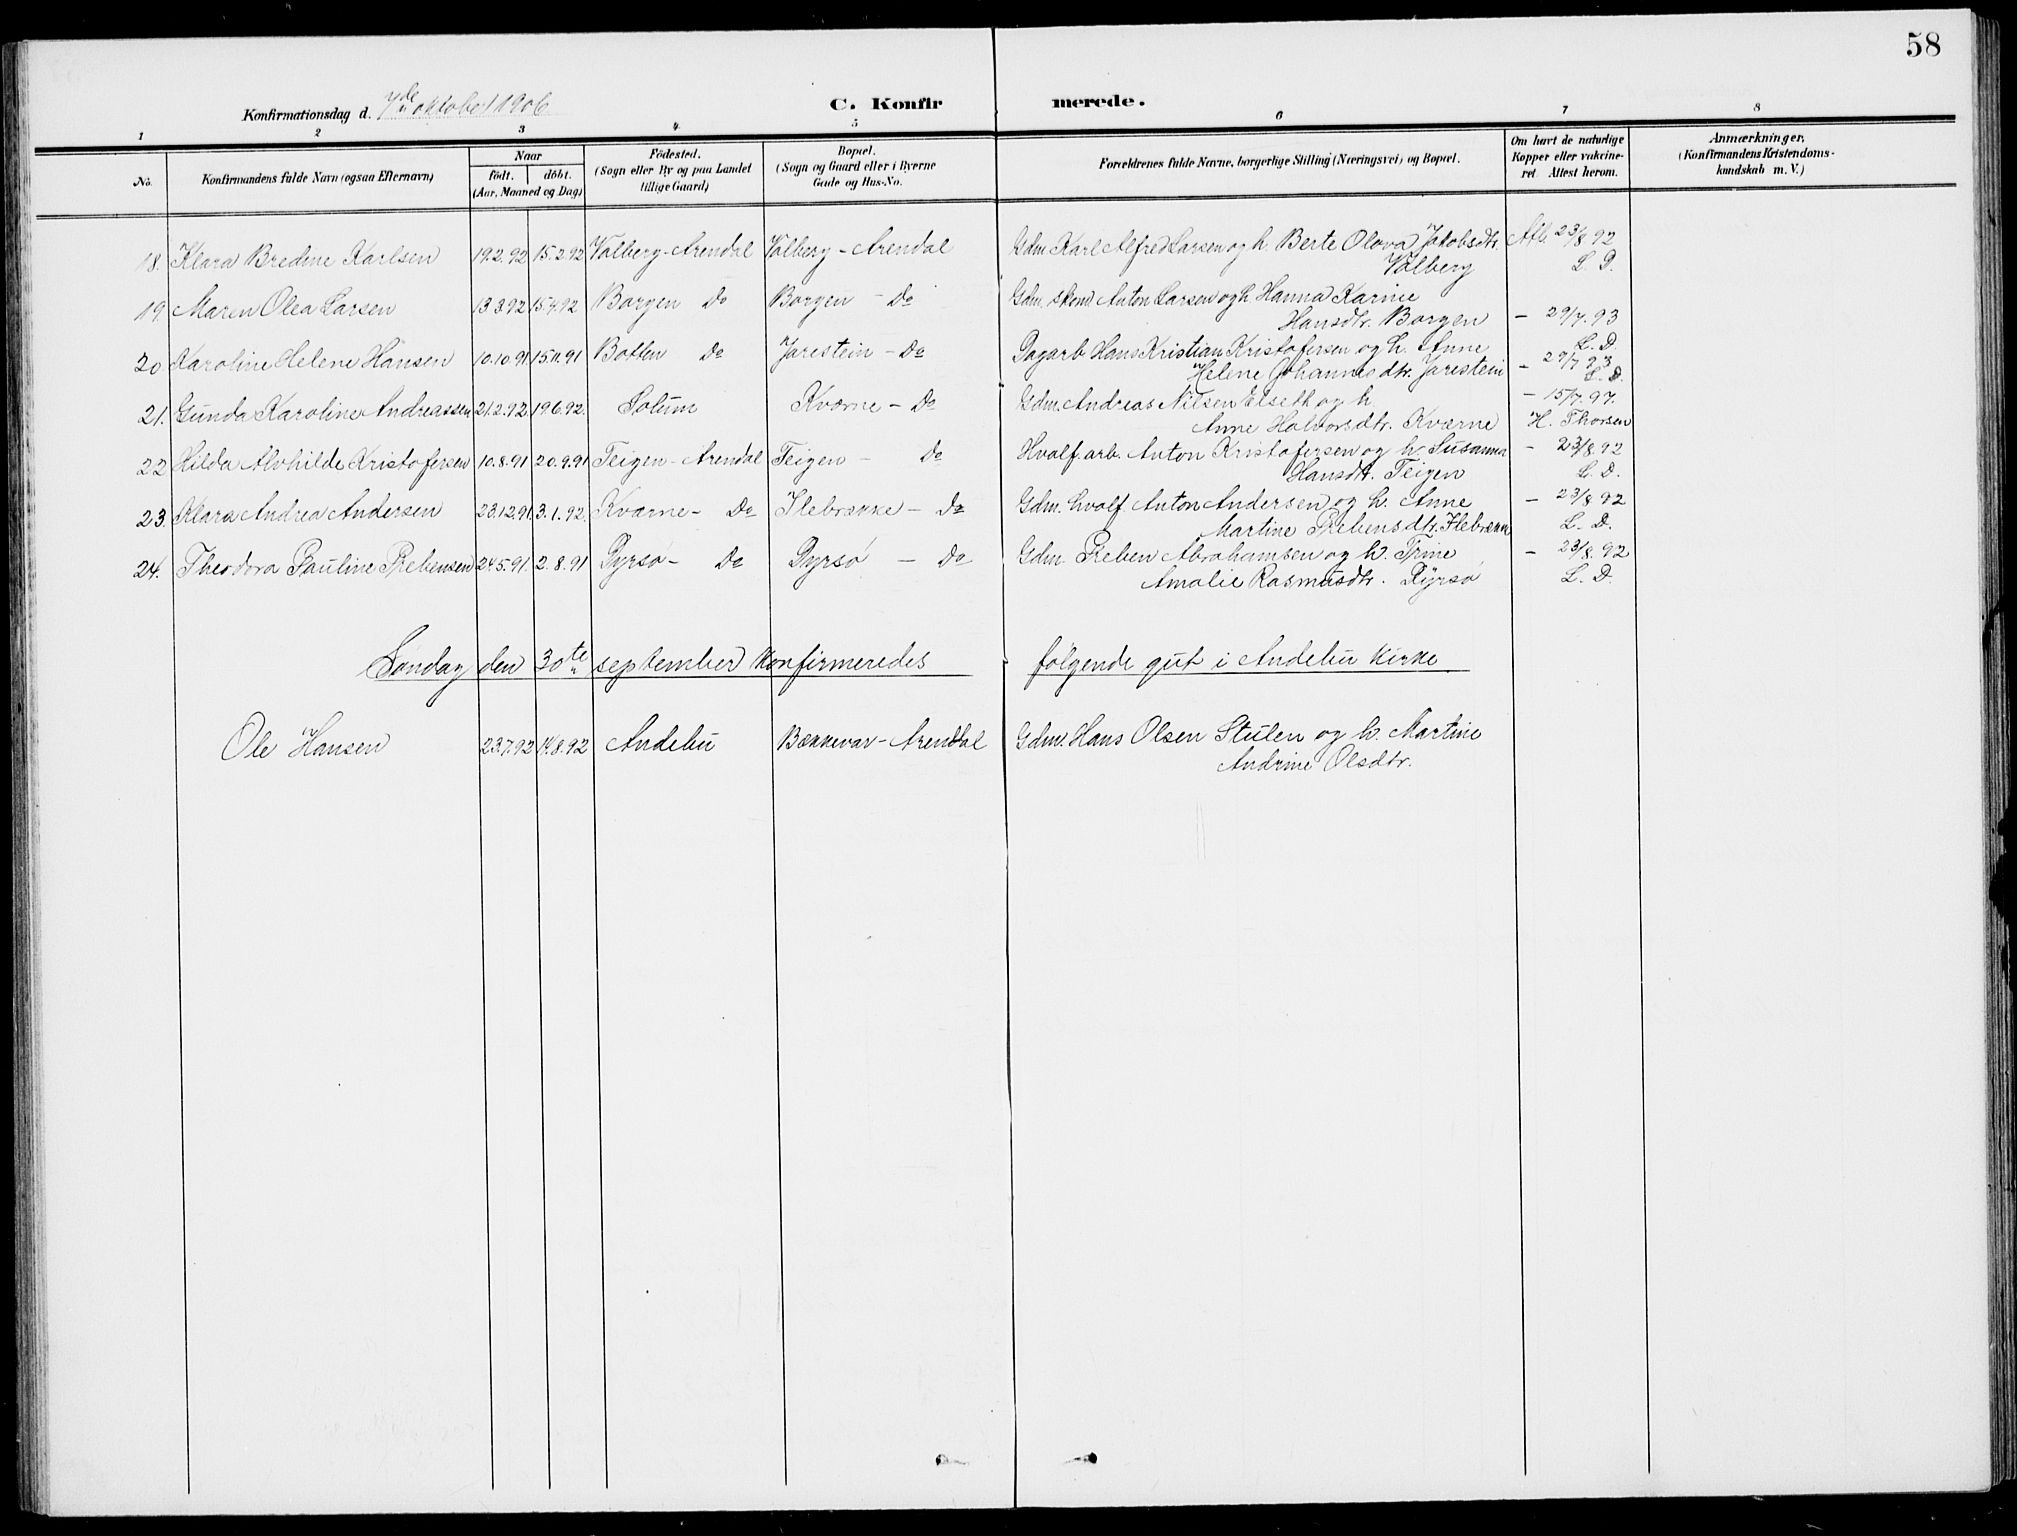 58
Konfirmationsdag d. 7de oktober 1906
C. Konfirmerede.
1 2 3 4 5 6 7 8
No.
Konfirmandens fulde Navn (ogsaa Efternavn)
Naar
födt. döbt.
(Aar, Maaned og Dag)
Födested.
(Sogn eller By og paa Landet
tillige Gaard)
Bopæl.
(Sogn og Gaard eller i Byerne
Gade og Hus-No.
Forældrenes fulde Navne, borgerlige Stilling (Næringsvei) og Bopæl.
Om havt de naturlige
Kopper eller vakcine-
ret. Attest herom.
Anmærkninger,
(Konfirmandens Kristendoms-
kundskab m. V.)
18. Klara Bredine Karlsen 19.2.92 15.2.92 Valberg - Arendal Valberg - Arendal Gdm. Karl Alfred Larsen og h. Berte Olova Jakobsdtr. Atb. 23/8 92
Valberg L. D.
19. Maren Olea Larsen 13.3.92 15.4.92 Borgen Do Borgen - Do Gdm. skomd. Anton Larsen og h. Hanna Karine
Hansdtr. Borgen - 29/7. 93
L. D.
20 Karoline Helene Hansen 10.10.91 15.11.91 Botten Do Jarestein - Do Dagarb. Hans Kristian Kristofersen og h. Anne
Helene Johannesdtr. Jarestein - 29/7 93
L. D.
21. Gunda Karoline Andreassen 21.2.92 19.6.92. Solum Kværne - Do Gdm. Andreas Nilsen Elseth og h. - 15/7. 97.
Anne Halvorsdtr. Kværne H. Thorsen
22 Hilda Alvhilde Kristofersen 10.8.91 20.9.91 Teigen - Arendal Teigen - Do Hvalf. arb. Anton Kristofersen og h. Susanna - 23/8. 92
Hansdt. Teigen L. D.
23. Klara Andrea Andersen 23.12.91. 3.1.92. Kværne - Do Ilebrække - Do Gdm. hvalf. Anton Andersen og h. Anne - 23/8 92
Martine Prebensdtr. Ilebrække L. D.
24. Theodora Pauline Prebensen 24.5.91. 2.8.91 Pyrsø - Do Pyrsø - Do Gdm. Preben Abrahamsen og h. Trine - 23/8. 92
Amalie Rasmusdtr. Pyrsø L. D.
Søndag den 30te september konfirmeredes følgende gut i Andebu kirke
Ole Hansen 23.7.92 14.8.92 Andebu Bækkevar - Arendal Gdm. Hans Olsen Stulen og h. Martine
Andrine Olsdtr.